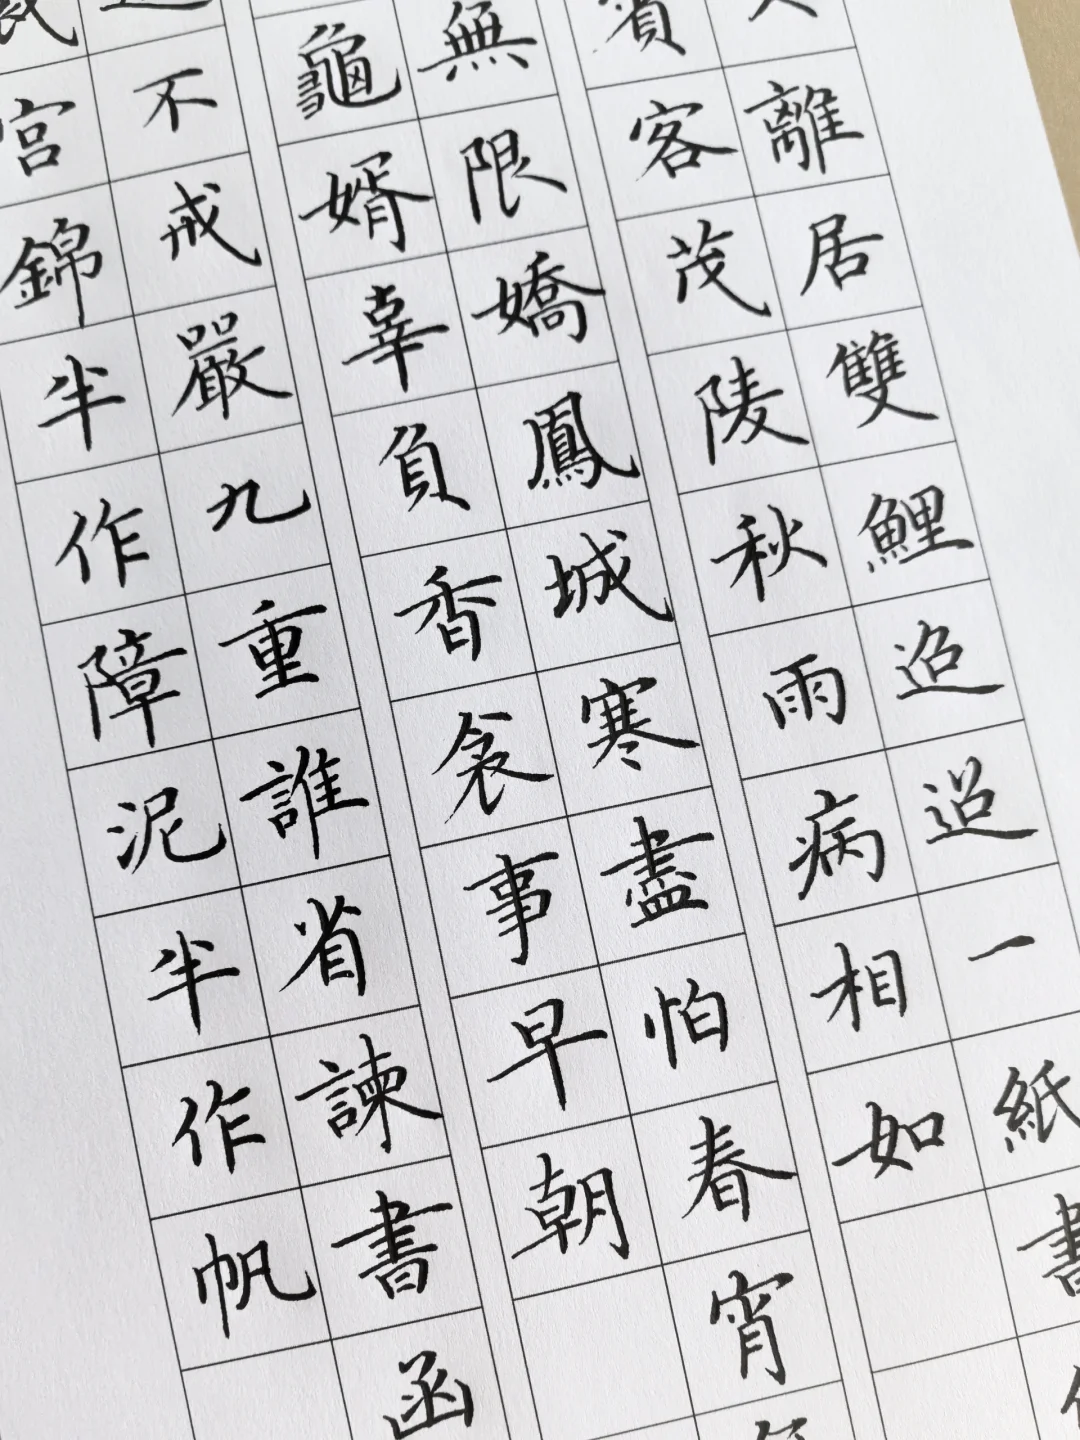 離居雙鯉迢迢一紙書
賓客茂陵秋雨病相如
無限嬌鳳城寒盡怕春宵
龜婿辜負香衾事早朝
不戒嚴九重誰省諫書函
宮錦半作障泥半作帆